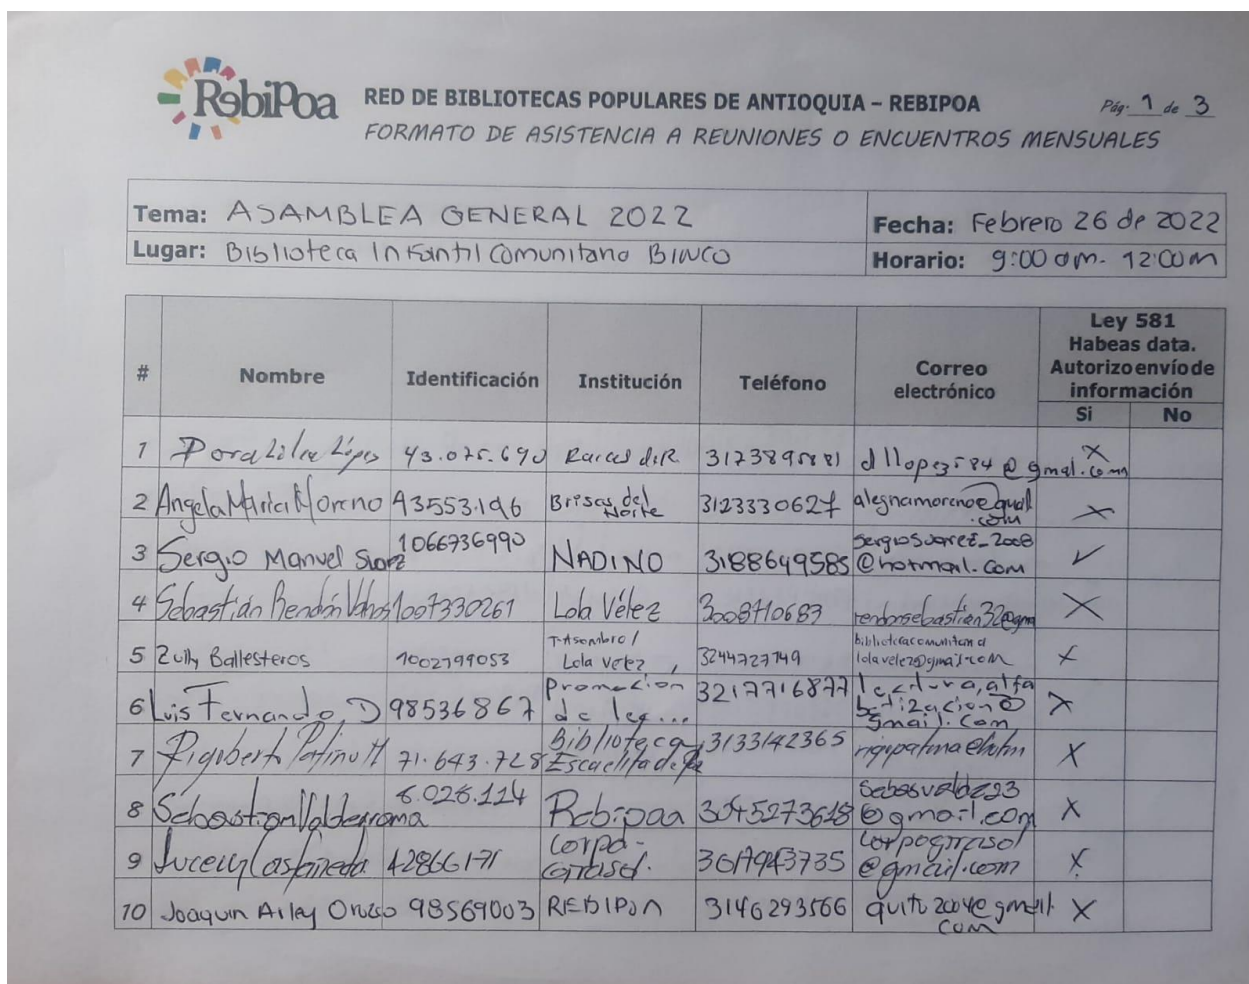 RebiPoa
RED DE BIBLIOTECAS POPULARES DE ANTIOQUIA – REBIPOA Pág. 1 de 3
FORMATO DE ASISTENCIA A REUNIONES O ENCUENTROS MENSUALES
Tema: ASAMBLEA GENERAL 2022
Fecha: Febrero 26 de 2022
Lugar: Biblioteca Infantil Comunitaria BINCO
Horario: 9:00 am. 12:00m
# Nombre Identificación Institución Teléfono Correo electrónico Ley 581 Habeas data. Autorizo envío de información
Si No
1 Dora Lilia López 43.075.690 Raices d.R. 3173895881 dllopez584@gmal.com X
2 Angela Maria Moreno 43553.196 Brisas del Norte 3123330627 alegnamoreno@gmail.com X
3 Sergio Manuel Suarez 1066736990 NADINO 3188649585 sergiosuarez_2008@hotmail.com ✓
4 Sebastián Rendón 1007330261 Lola Vélez 3008710683 rendonsebastian32@gma X
5 Zully Ballesteros 1002799053 T-Asombro / Lola Velez 3244727149 bibliotecacomunitaria lolavelez@gmail.com X
6 Luis Fernando D 98536867 Promocion de lec... 3217716877 lectura,alfabetizacion@gmail.com X
7 Rigoberto Patiño M 71.643.728 Biblioteca Escuelita de 3133142365 X
8 Sebastian Valderrama 8.026.124 Rebipoa 3045273618 @gmail.com X
9 Lucelly Castañeda 42866171 Corpo-Girasol. corpogirasol@gmail.com X
10 Joaquin Arley Orozco 98569003 REBIPOA 3146293566 quito2004@gmail.com X